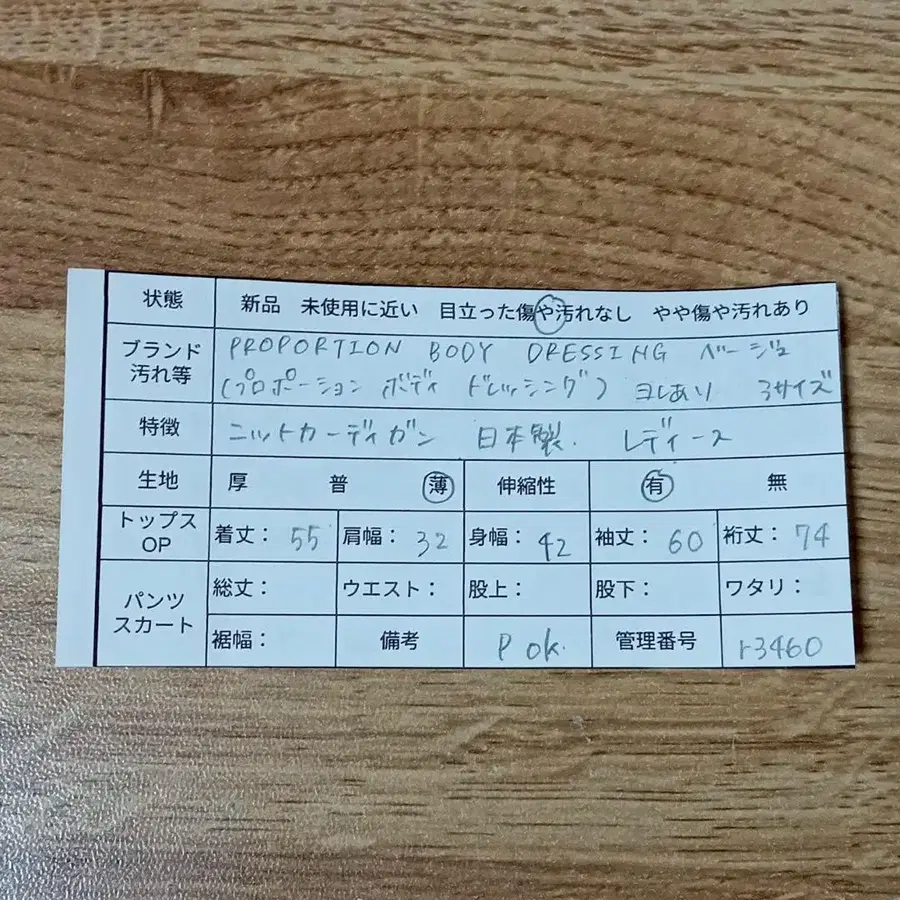 状態 新品 未使用に近い 目立った傷や汚れなし やや傷や汚れあり
ブランド 汚れ等 PROPORTION BODY DRESSING ベージュ
(プロポーション ボディ ドレッシング) ヨレあり 3サイズ
特徴 ニットカーディガン 日本製. レディース
生地 厚 普 薄 伸縮性 有 無
トップス OP 着丈: 55 肩幅: 32 身幅: 42 袖丈: 60 裄丈: 74
パンツ スカート 総丈: ウエスト: 股上: 股下: ワタリ:
裾幅: 備考 P ok. 管理番号 r3460